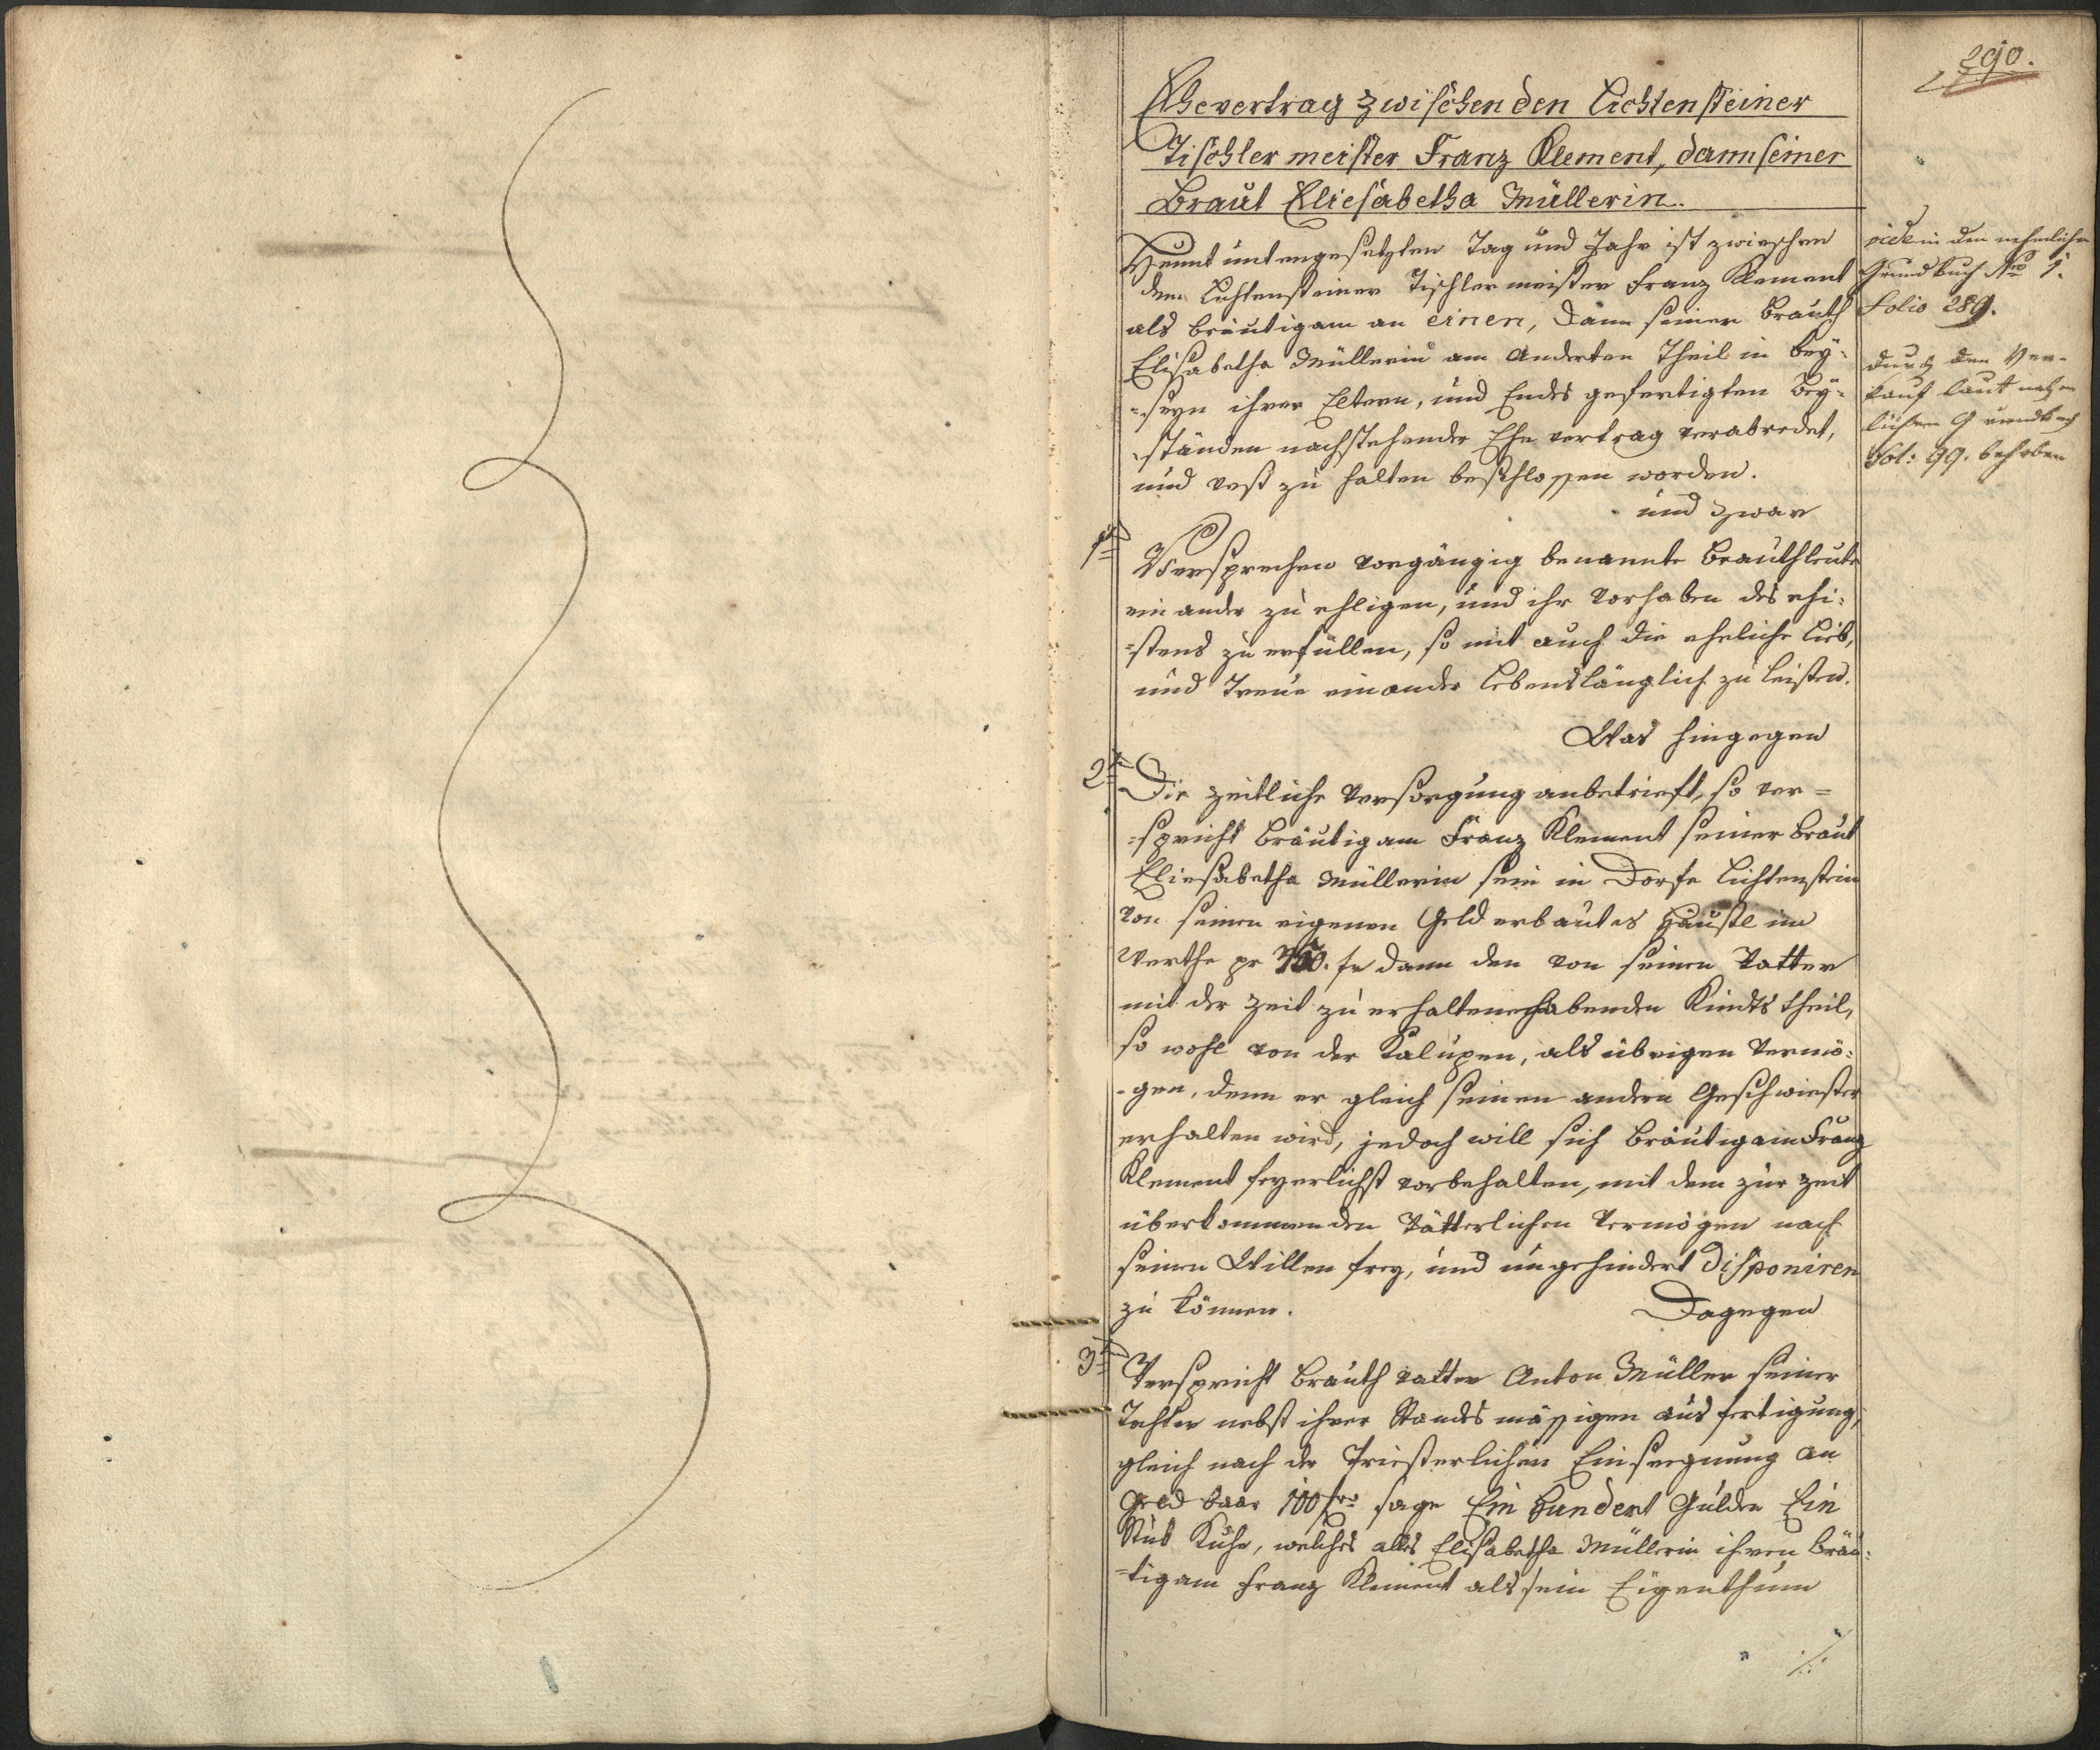 290.
Ehevertrag zwischen den Lichtensteiner
Tischler meister Franz Klement, dann seiner
Braut Eliesabetha Müllerin.
Heunt untengesetzten Tag und Jahr ist zwieschen
dem Lichtensteiner Tischlermeister Franz Klement
als Bräutigam an einen, dann seiner Brauth
Elisabetha Müllerin am Anderten Theil in bey-
-seyn ihrer Eltern, und Endes gefertigten Bey-
-ständen nachstehender Ehe vertrag verabredet,
und vest zu halten beschlossen worden.
und zwar
vide in den nehmlichen
Grundbuch Nro 1.
Folio 289.
durch den Ver-
kauf laut
Grundbuch
Fol: 99. behoben
1tens
Versprechen vorgängig benannte Brauthleute
ein ander zu ehligen, und ihr vorhaben des ehi-
-stens zu erfüllen, so mit auch die eheliche Lieb,
und Treue einander Lebenslänglich zu leisten.
Was hingegen
2tens
Die zeitliche Versorgung anbetrieft, so ver=
-spricht Bräutigam Franz Klement seiner Braut
Eliesabetha Müllerin sein in Dorfe Lichtenstein
von seinen eigenen Geld erbautes Häusl im
Werthe pr fr dann den von seinen Vatter
mit der Zeit zu erhalten habenden Kindts theil,
so wohl von der Kalupen, als übrigen Vermö-
-gen, denn er gleich seinen andern Geschwiester
erhalten wird, jedoch will sich Bräutigam Franz
Klement feyerlichst vorbehalten, mit dem zur Zeit
überkommenden Vätterlichen Vermögen nach
seinen Willen frey, und ungehindert disponiren
zu können. Dagegen
3tens
Verspricht Brauth vatter Anton Müller seiner
Tochter nebst ihrer Standes mässigen ausfertigung,
gleich nach der Priesterlichen Einseegnung an
Geld baar 100 fr sage Ein Hundert Gulden Ein
Stük Kuhe, welches alles Elisabetha Müllerin ihren Bräu-
-tigam Franz Klement als sein Eigenthum
./.